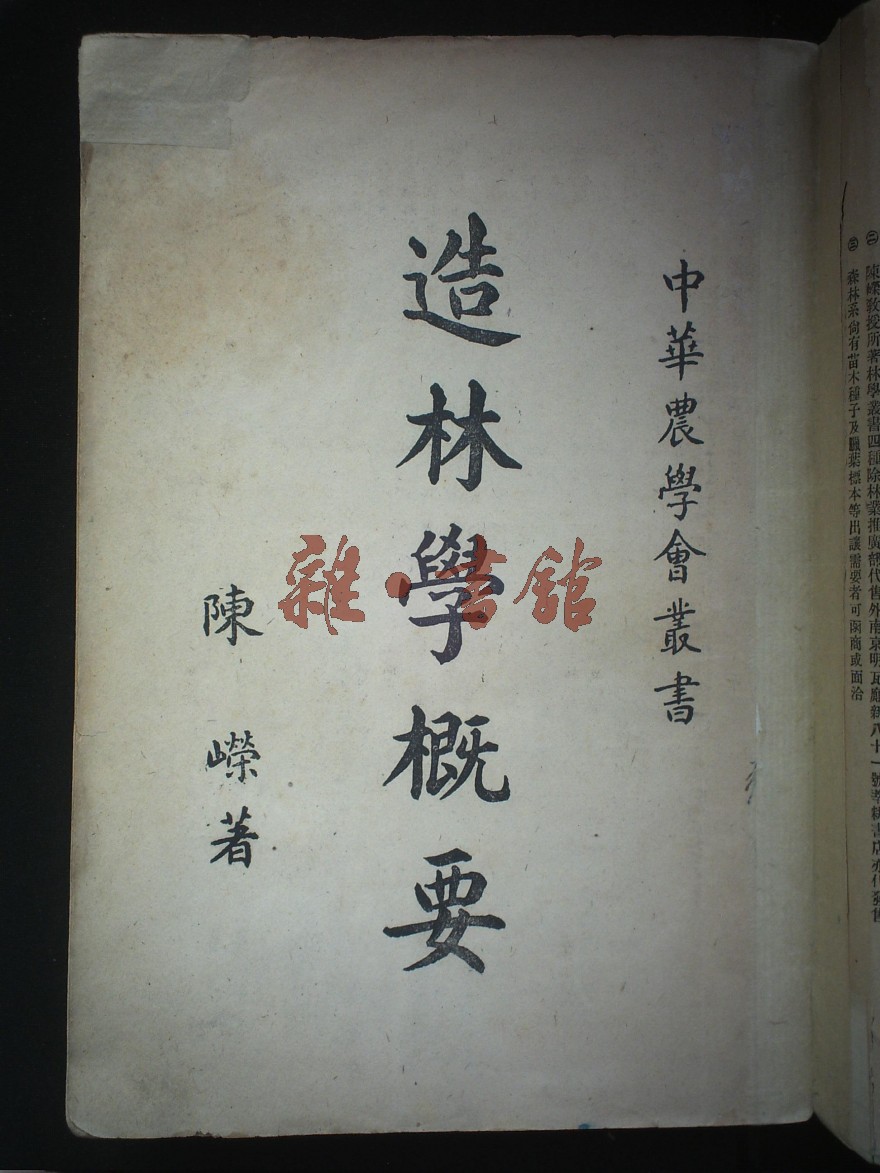 ㊁ 陳嶸教授所著林學叢書四種除林業推廣部代售外南京明瓦廊新八十一號
㊂ 森林系尙有苗木種子及臘葉標本等出讓需要者可函商或面洽
中華農學會叢書
造林學概要
陳嶸著
雜·書館